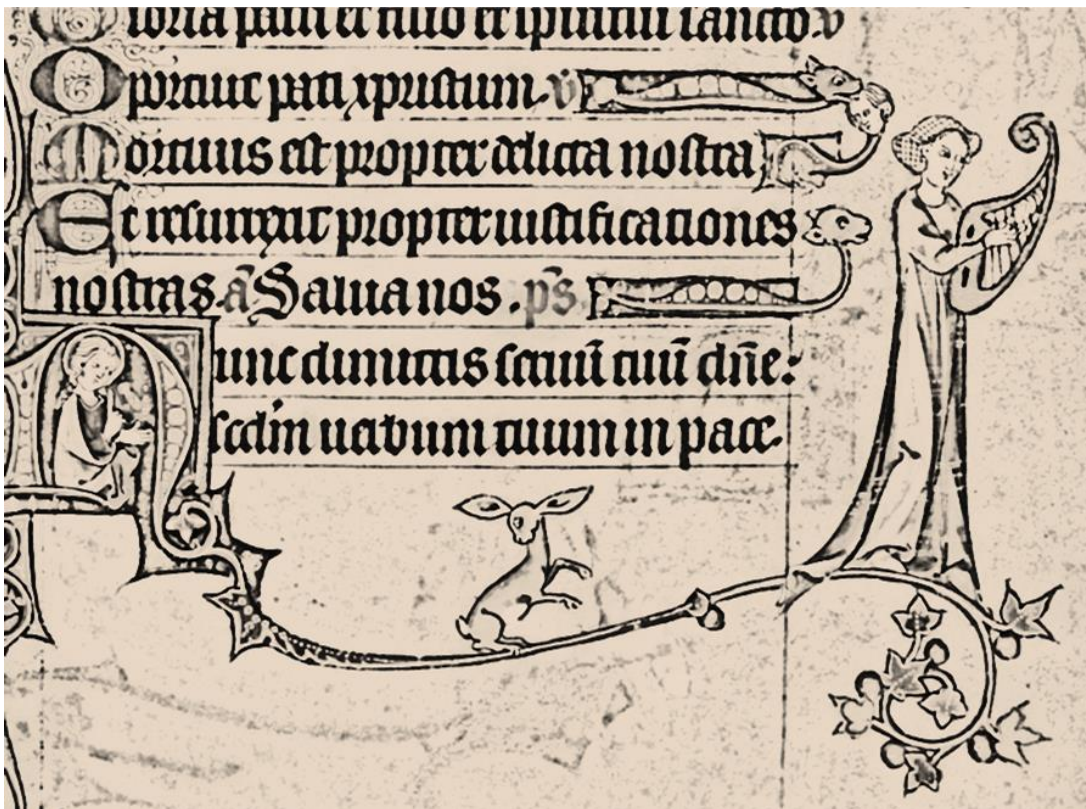 Gloria patri et filio et spiritui sancto. v
Oportuit pati xpristum. v̄
Mortuus est propter delicta nostra
Et resurrexit propter iustificationes
nostras. ā Salua nos. p̄s
Nunc dimittis seruū tuū dn̄e:
scdm̄ uerbum tuum in pace.